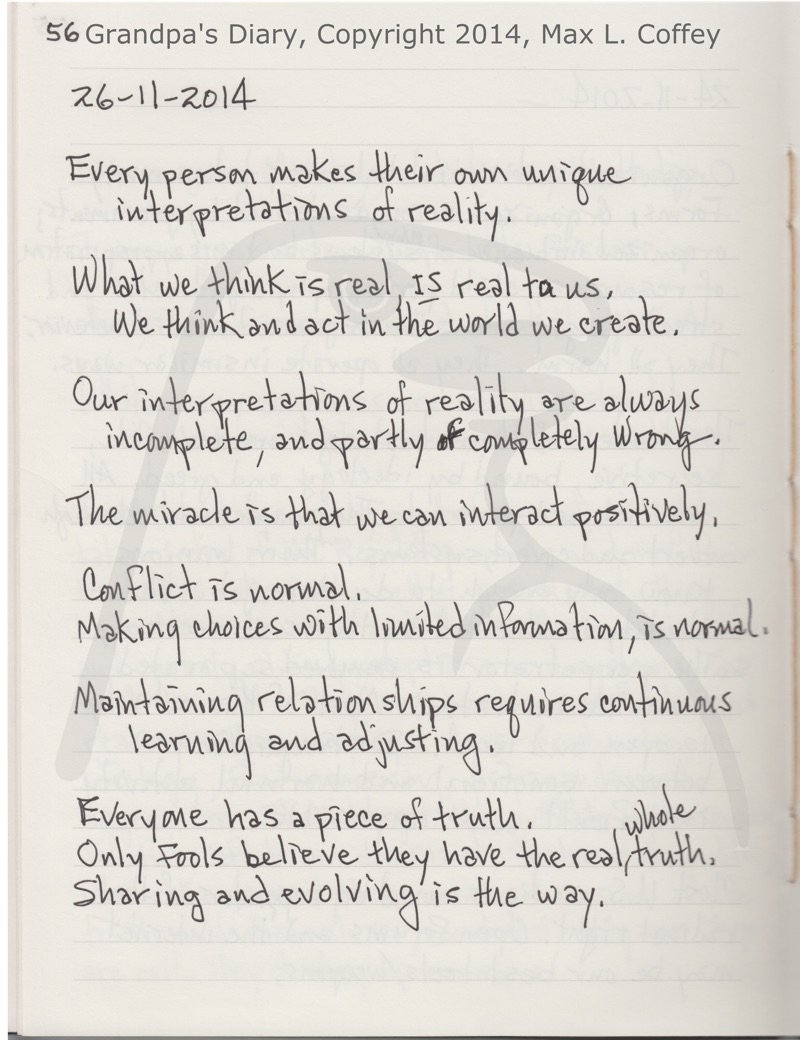 56 Grandpa's Diary, Copyright 2014, Max L. Coffey
26-11-2014
Every person makes their own unique
interpretations of reality.
What we think is real, IS real to us.
We think and act in the world we create.
Our interpretations of reality are always
incomplete, and partly of completely wrong.
The miracle is that we can interact positively.
Conflict is normal.
Making choices with limited information, is normal.
Maintaining relationships requires continuous
learning and adjusting.
Everyone has a piece of truth.
Only Fools believe they have the real, whole truth.
Sharing and evolving is the way.